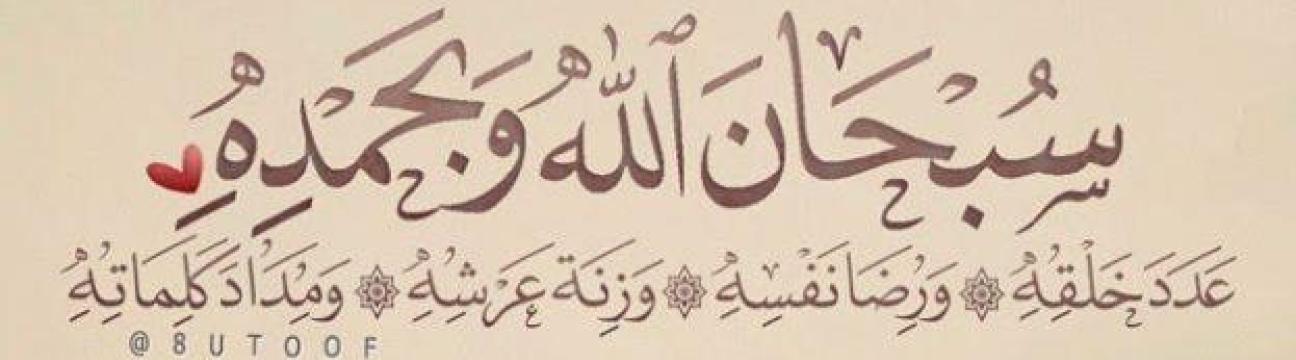 سُبْحَانَ ٱللّٰهُ وَبِحَمْدِهِ
عَدَدَ خَلْقِهُ ۞ وَرِضَا نَفْسِهُ ۞ وَزِنَة عَرْشِهُ ۞ وَمِدَادَ كَلِمَاتِهُ
@8UTOOF